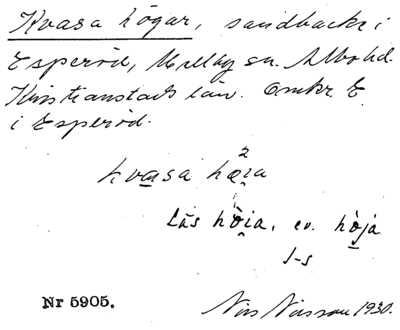 Kvasa högar, sandbacke i
Esperöd, Mellby sn. Albo hd.
Kristianstads län. Omkr E
i Esperöd.
kvasa hœ̣ia
2
Läs hòia, ev. hòja
J-s
Nr 5905.
Nils Nilsson 1930.